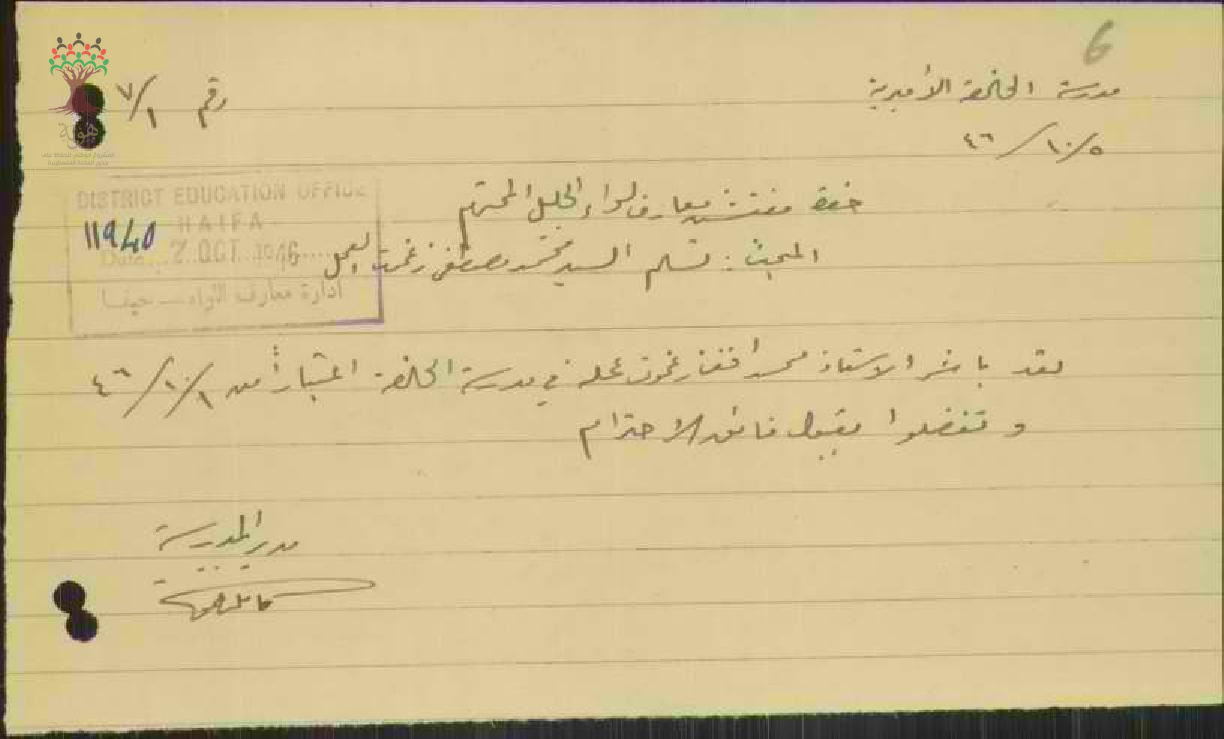 6
مدرسة الخالصة الأميرية
رقم ٧/١
٤٦/١٠/٥
هوية
DISTRICT EDUCATION OFFICE
HAIFA
11940
Date... 7 OCT 1946
ادارة معارف اللواء — حيفا
حضرة مفتش معارف لواء الجليل المحترم
المبحث : تسلم السيد محمد مصطفى زغموت العمل
لقد باشر الاستاذ محمد افندي زغموت عمله في مدرسة الخالصة اعتباراً من ٤٦/١٠/١
و تفضلوا بقبول فائق الاحترام
مدير المدرسة